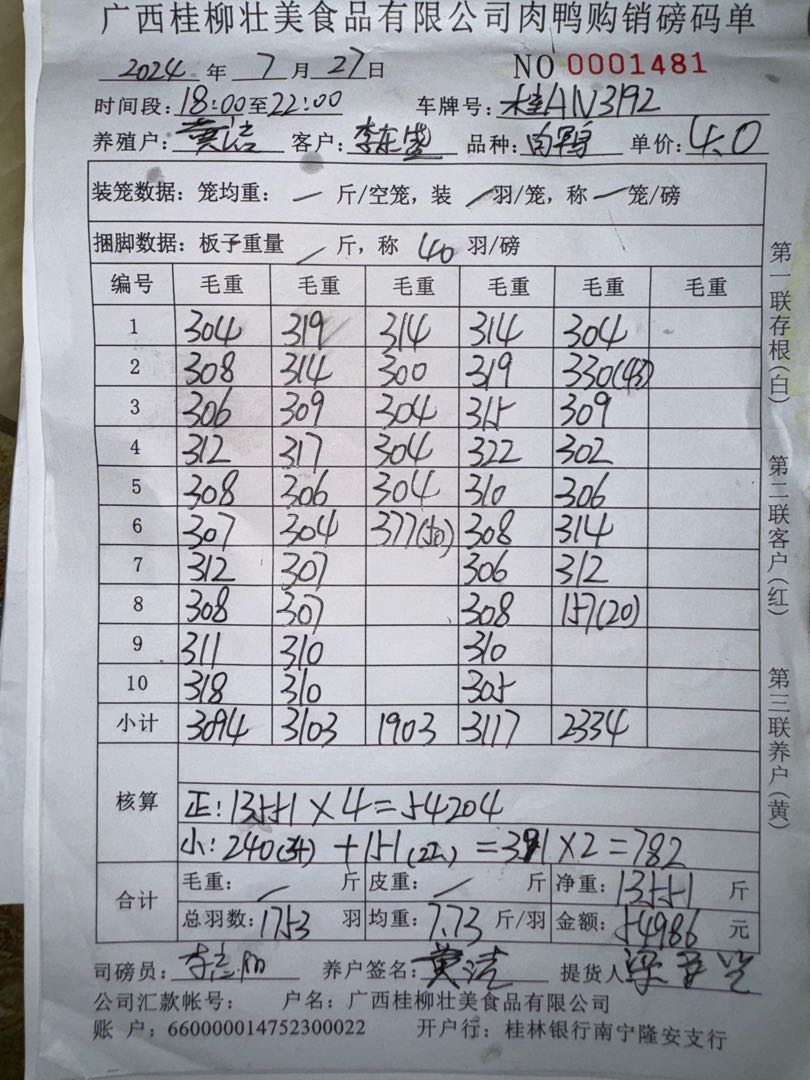 广西桂柳壮美食品有限公司肉鸭购销磅码单
2024 年 7 月 27 日 NO 0001481
时间段: 18:00至22:00 车牌号: 桂AN3192
养殖户: 黄洁 客户: 李东盛 品种: 肉鸭 单价: 4.0
装笼数据: 笼均重: — 斤/空笼, 装 — 羽/笼, 称 — 笼/磅
捆脚数据: 板子重量 — 斤, 称 40 羽/磅
编号 毛重 毛重 毛重 毛重 毛重 毛重
1 304 319 314 314 304
2 308 314 300 319 330(43)
3 306 309 304 315 309
4 312 317 304 322 302
5 308 306 304 310 306
6 307 304 377(50) 308 314
7 312 307 306 312
8 308 307 308 157(20)
9 311 310 310
10 318 310 305
小计 3094 3103 1903 3117 2334
核算
正: 13551×4=54204
小: 240(34)+151(22)=391×2=782
合计
毛重: — 斤 皮重: — 斤 净重: 13551 斤
总羽数: 1753 羽 均重: 7.73 斤/羽 金额: 54986 元
司磅员: 养户签名: 黄洁 提货人
公司汇款帐号: 户名: 广西桂柳壮美食品有限公司
账 户: 660000014752300022 开户行: 桂林银行南宁隆安支行
第一联存根(白)
第二联客户(红)
第三联养户(黄)